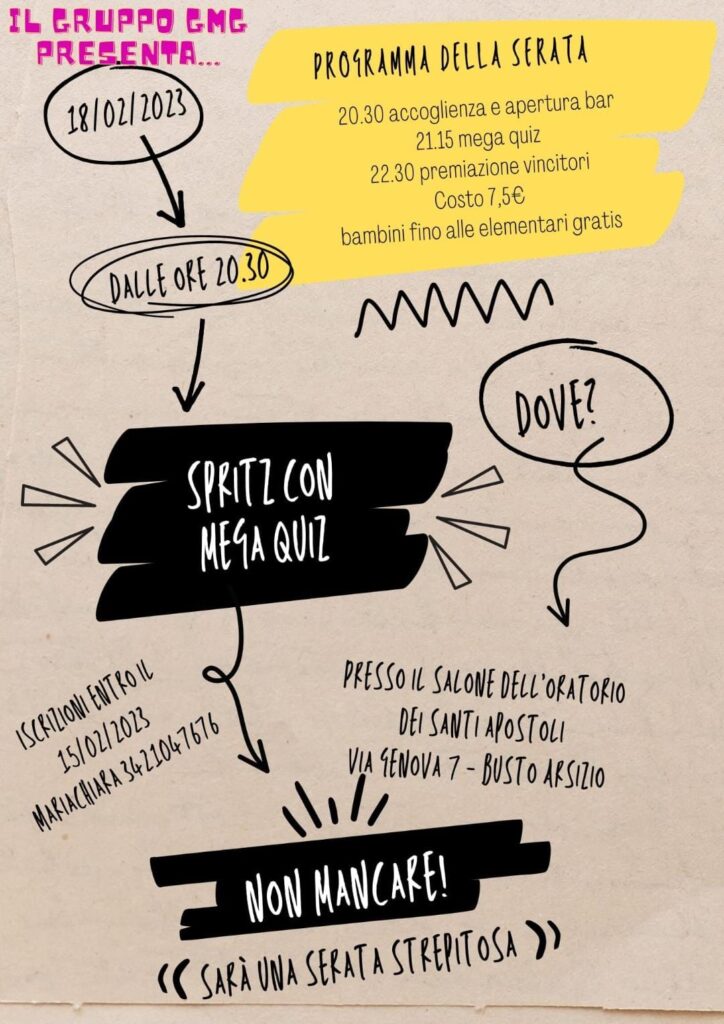 IL GRUPPO GMG
PRESENTA...
18/02/2023
DALLE ORE 20.30
PROGRAMMA DELLA SERATA
20.30 accoglienza e apertura bar
21.15 mega quiz
22.30 premiazione vincitori
Costo 7,5€
bambini fino alle elementari gratis
SPRITZ CON
MEGA QUIZ
DOVE?
PRESSO IL SALONE DELL'ORATORIO
DEI SANTI APOSTOLI
VIA GENOVA 7 - BUSTO ARSIZIO
ISCRIZIONI ENTRO IL
15/02/2023
MARIACHIARA 3421047676
NON MANCARE!
SARÀ UNA SERATA STREPITOSA